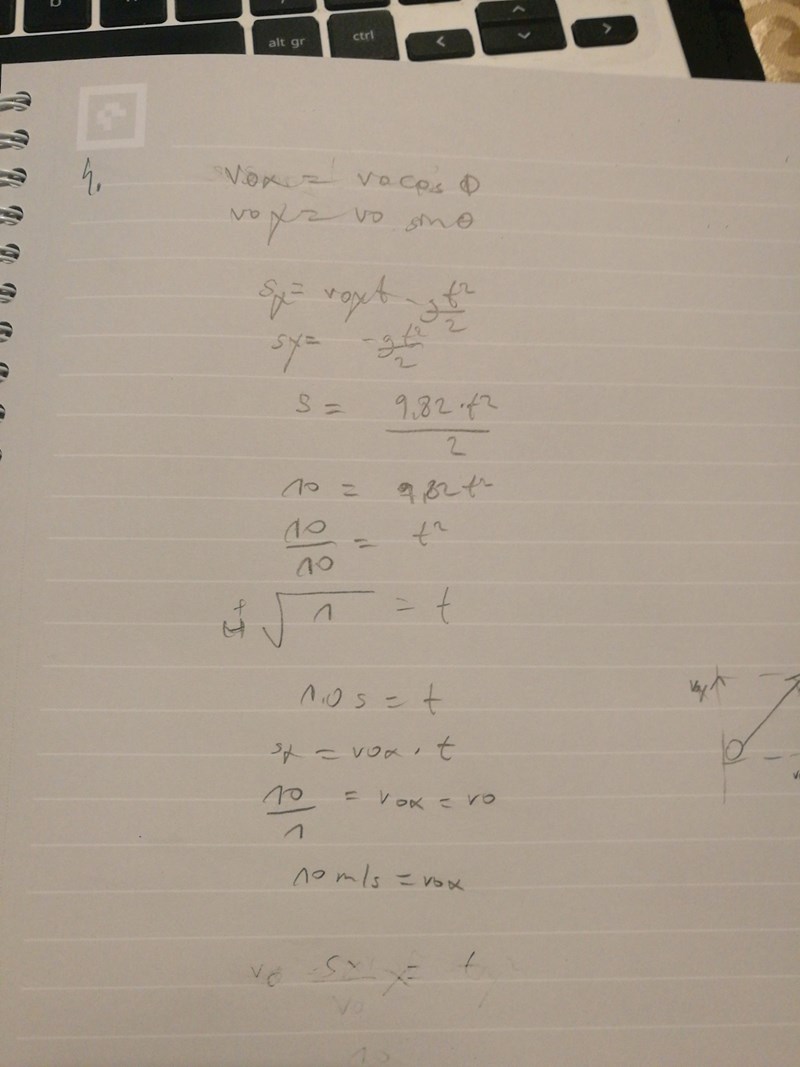 alt gr
ctrl
4.
v0x = v0 cos Φ
v0y = v0 sin θ
sy = v0yt - gt²/2
sy = -gt²/2
s = 9,82·t²/2
10 = 9,82t²
10/10 = t²
± √1 = t
1,0 s = t
sx = v0x · t
10/1 = v0x = v0
10 m/s = v0x
v0y
v0 sx = t
v0
10